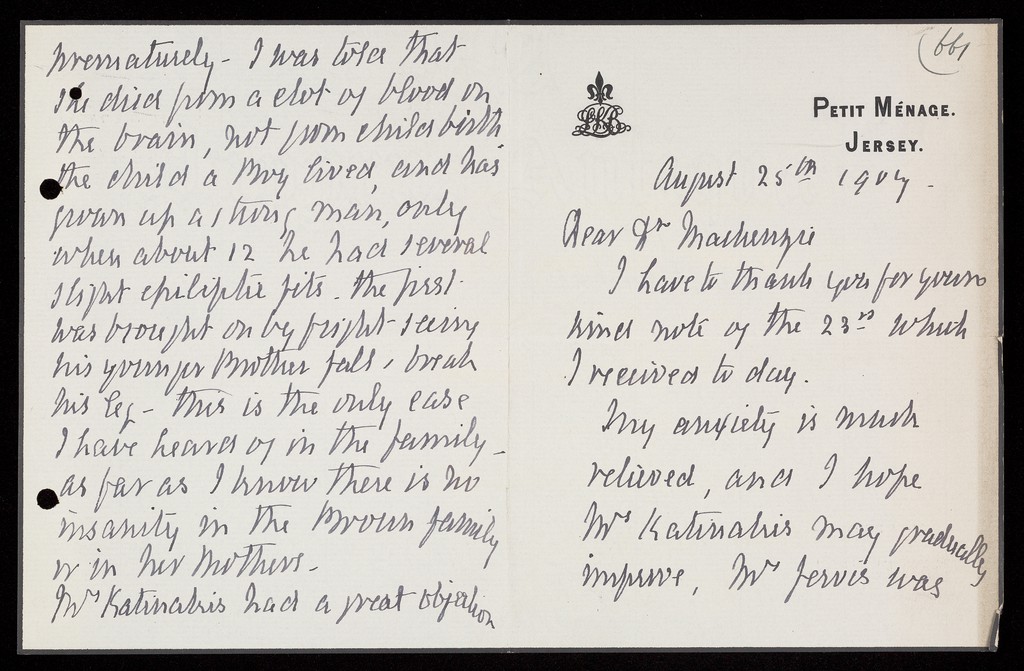 661
PETIT MÉNAGE.
JERSEY.
August 25th 1904.
Dear Dr Mackenzie
I have to thank you for your
kind note of the 23rd which
I received to day.
My anxiety is much
relieved, and I hope
Mrs Katinakis may gradually
improve, Mrs Jervis was
prematurely - I was told that
she died from a clot of blood on
the brain, not from child birth
the child a Boy lived, and has
grown up a strong man, only
when about 12 he had several
slight epiliptic fits. the first
was brought on by fright - seeing
his younger Brother fall & break
his leg - this is the only case
I have heard of in the family -
as far as I know there is no
insanity in the Brown family
or in her Mothers -
Mrs Katinakis had a great objection